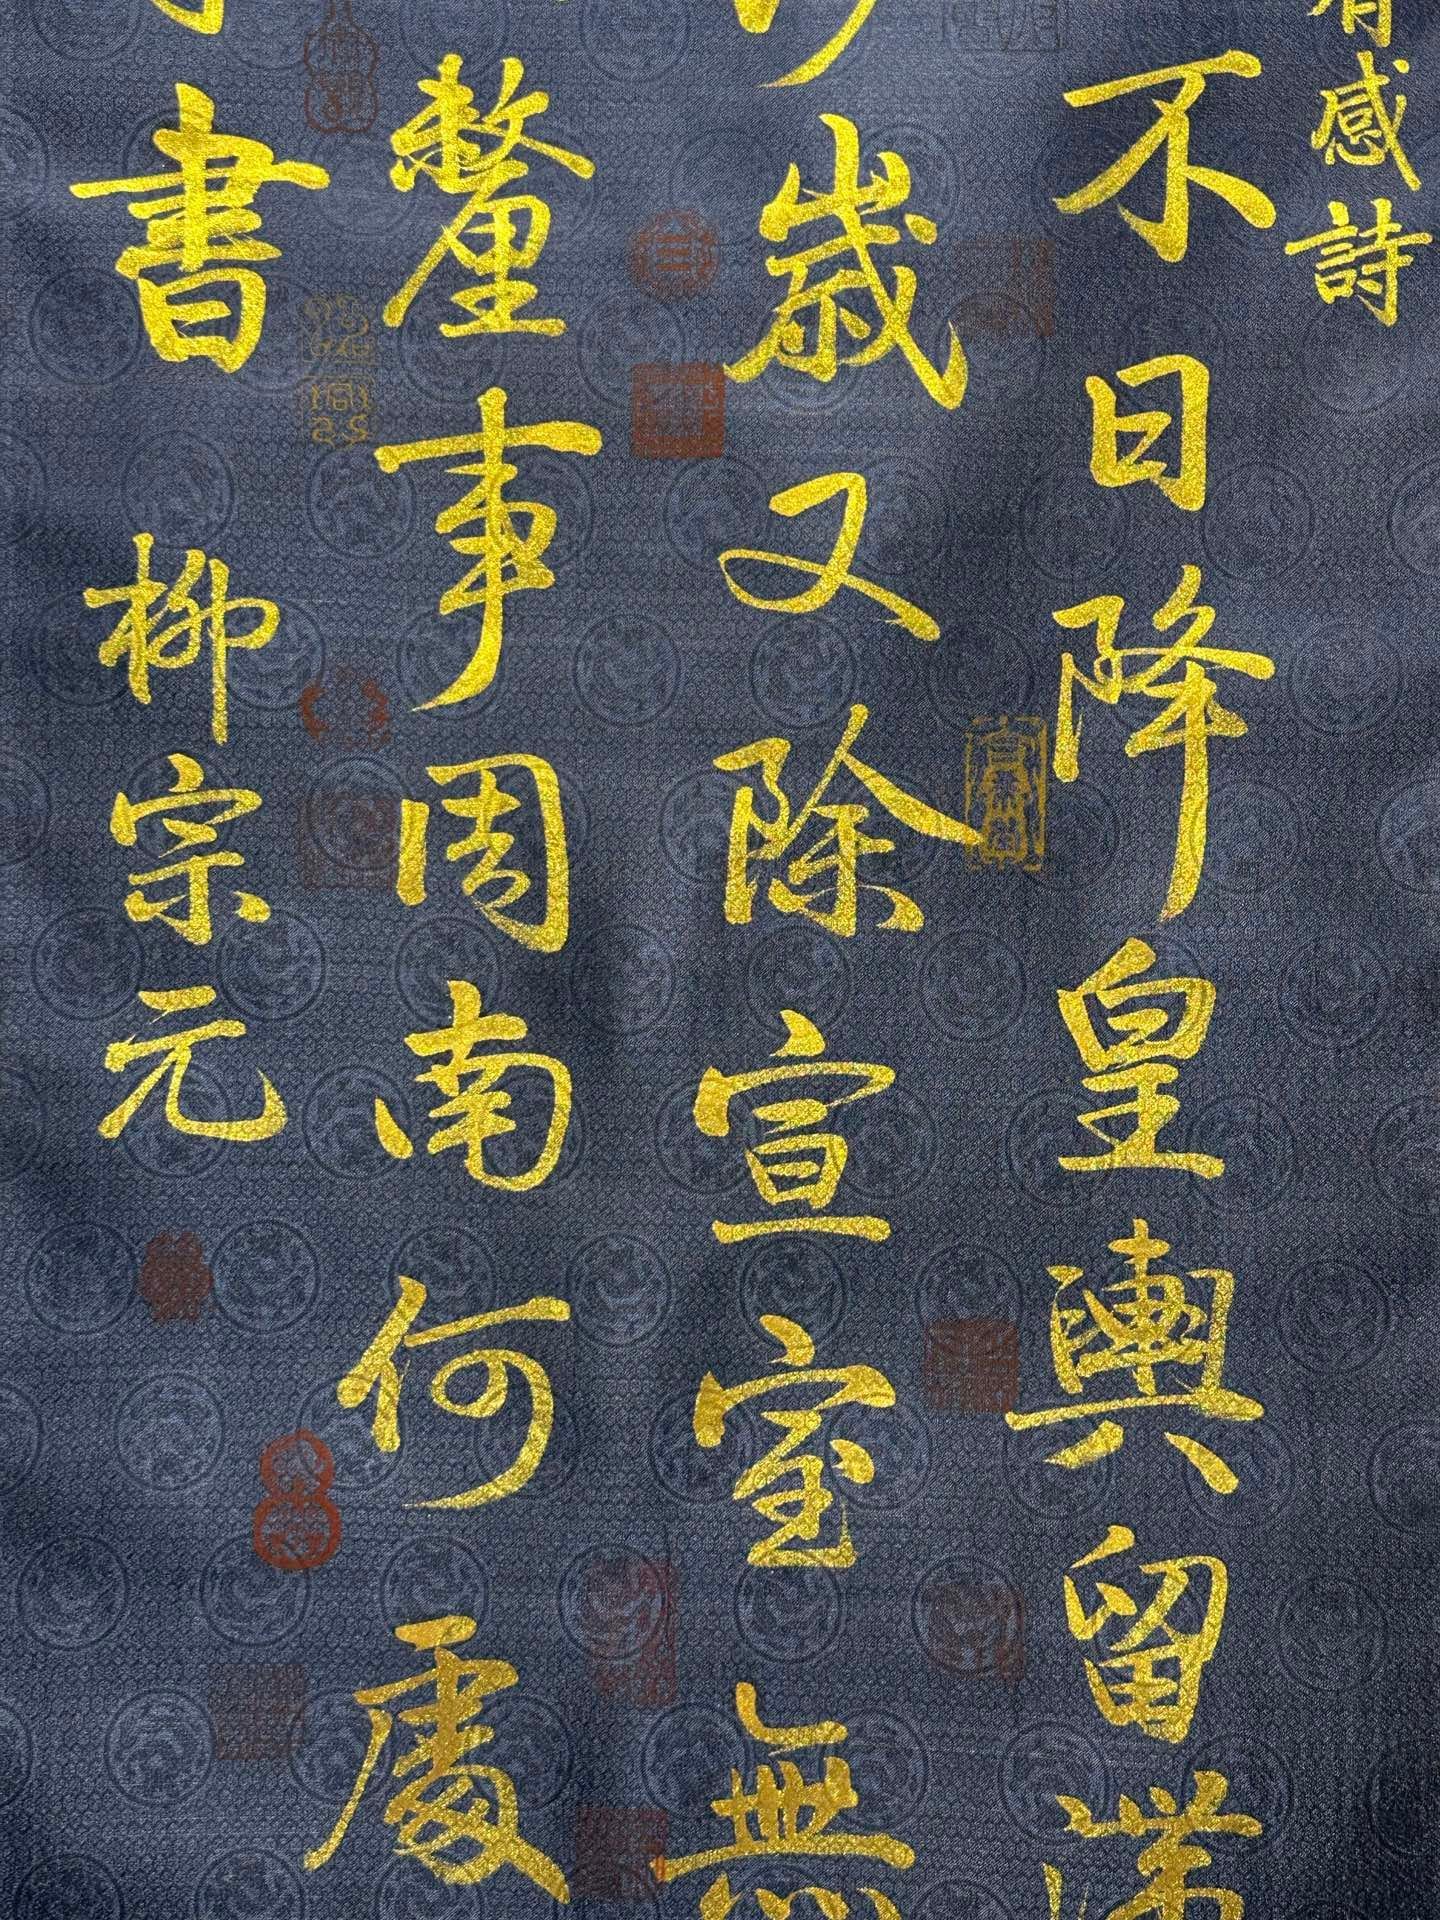 有感詩
不日降皇輿留滞
歳又除宣室無
釐事周南何處
書 柳宗元